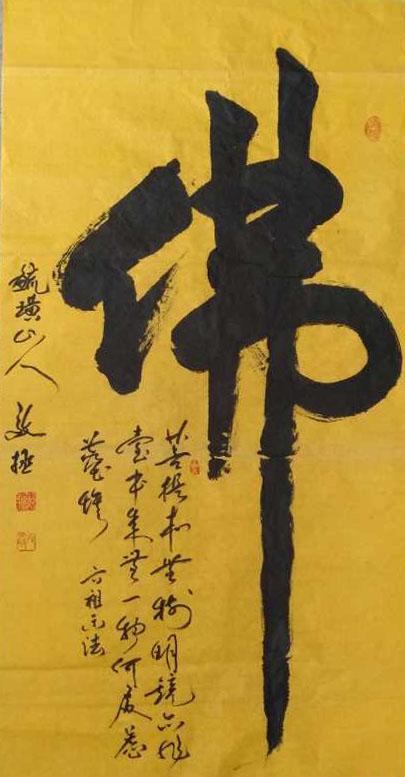 佛
菩提本無樹明鏡亦非
臺本來無一物何處惹
塵埃 六祖示法
毓璜山人